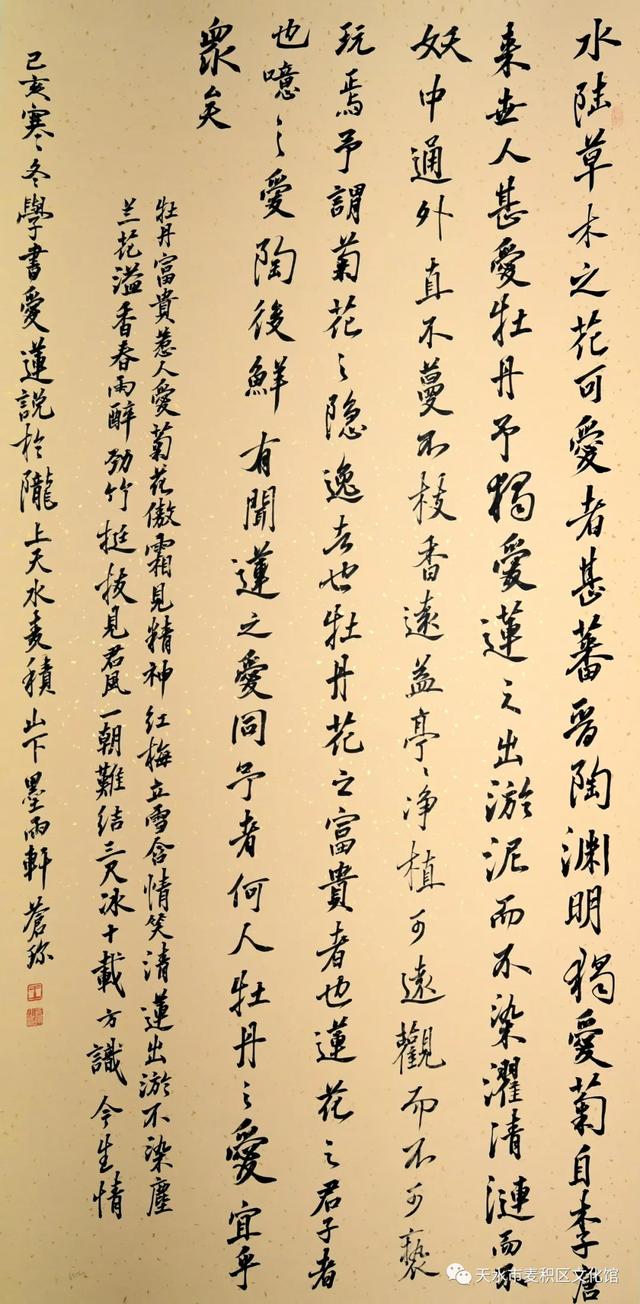 水陸草木之花可愛者甚蕃晋陶渊明獨愛菊自李唐
来世人甚愛牡丹予獨愛蓮之出淤泥而不染濯清漣而不
妖中通外直不蔓不枝香遠益亭〻净植可遠觀而不可褻
玩焉予謂菊花之隐逸者也牡丹花之富貴者也蓮花之君子者
也噫之愛陶後鮮有聞蓮之愛同予者何人牡丹之愛宜乎
衆矣
牡丹富貴惹人愛菊花傲霜見精神红梅立雪含情笑清蓮出淤不染塵
兰花溢香春雨醉劲竹挺拔見君風一朝難结三尺冰十載方識今生情
己亥寒冬學書愛蓮説於隴上天水麦積山下墨雨軒蒼珎
天水市麦积区文化馆